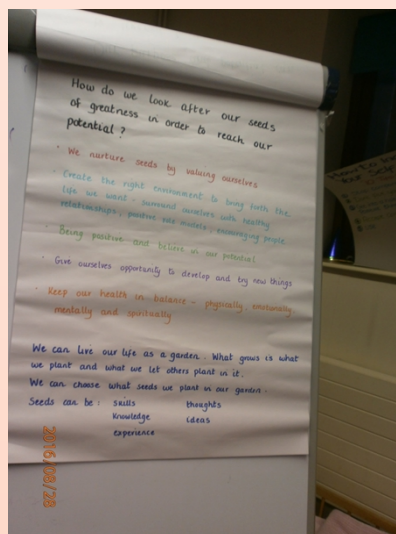 How do we look after our seeds
of greatness in order to reach our
potential?
· We nurture seeds by valuing ourselves
· Create the right environment to bring forth the
life we want, surround ourselves with healthy
relationships, positive role models, encouraging people
· Being positive and believe in our potential
· Give ourselves opportunity to develop and try new things
· Keep our health in balance - physically, emotionally,
mentally and spiritually
We can live our life as a garden. What grows is what
we plant and what we let others plant in it.
We can choose what seeds we plant in our garden.
Seeds can be: skills thoughts
knowledge ideas
experience
How to
Your Sel
2016/08/28